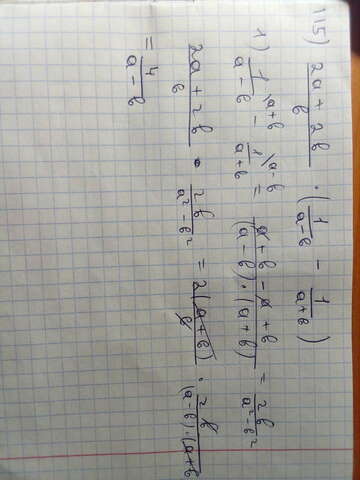 115) (2a + 2b)/b · (1/(a-b) - 1/(a+b))
1) 1\a+b/(a-b) - 1\a-b/(a+b) = (a+b-a+b)/((a-b)·(a+b)) = 2b/(a²-b²)
(2a + 2b)/b · 2b/(a²-b²) = 2(a+b)/b · 2b/((a-b)·(a+b)
= 4/(a-b)